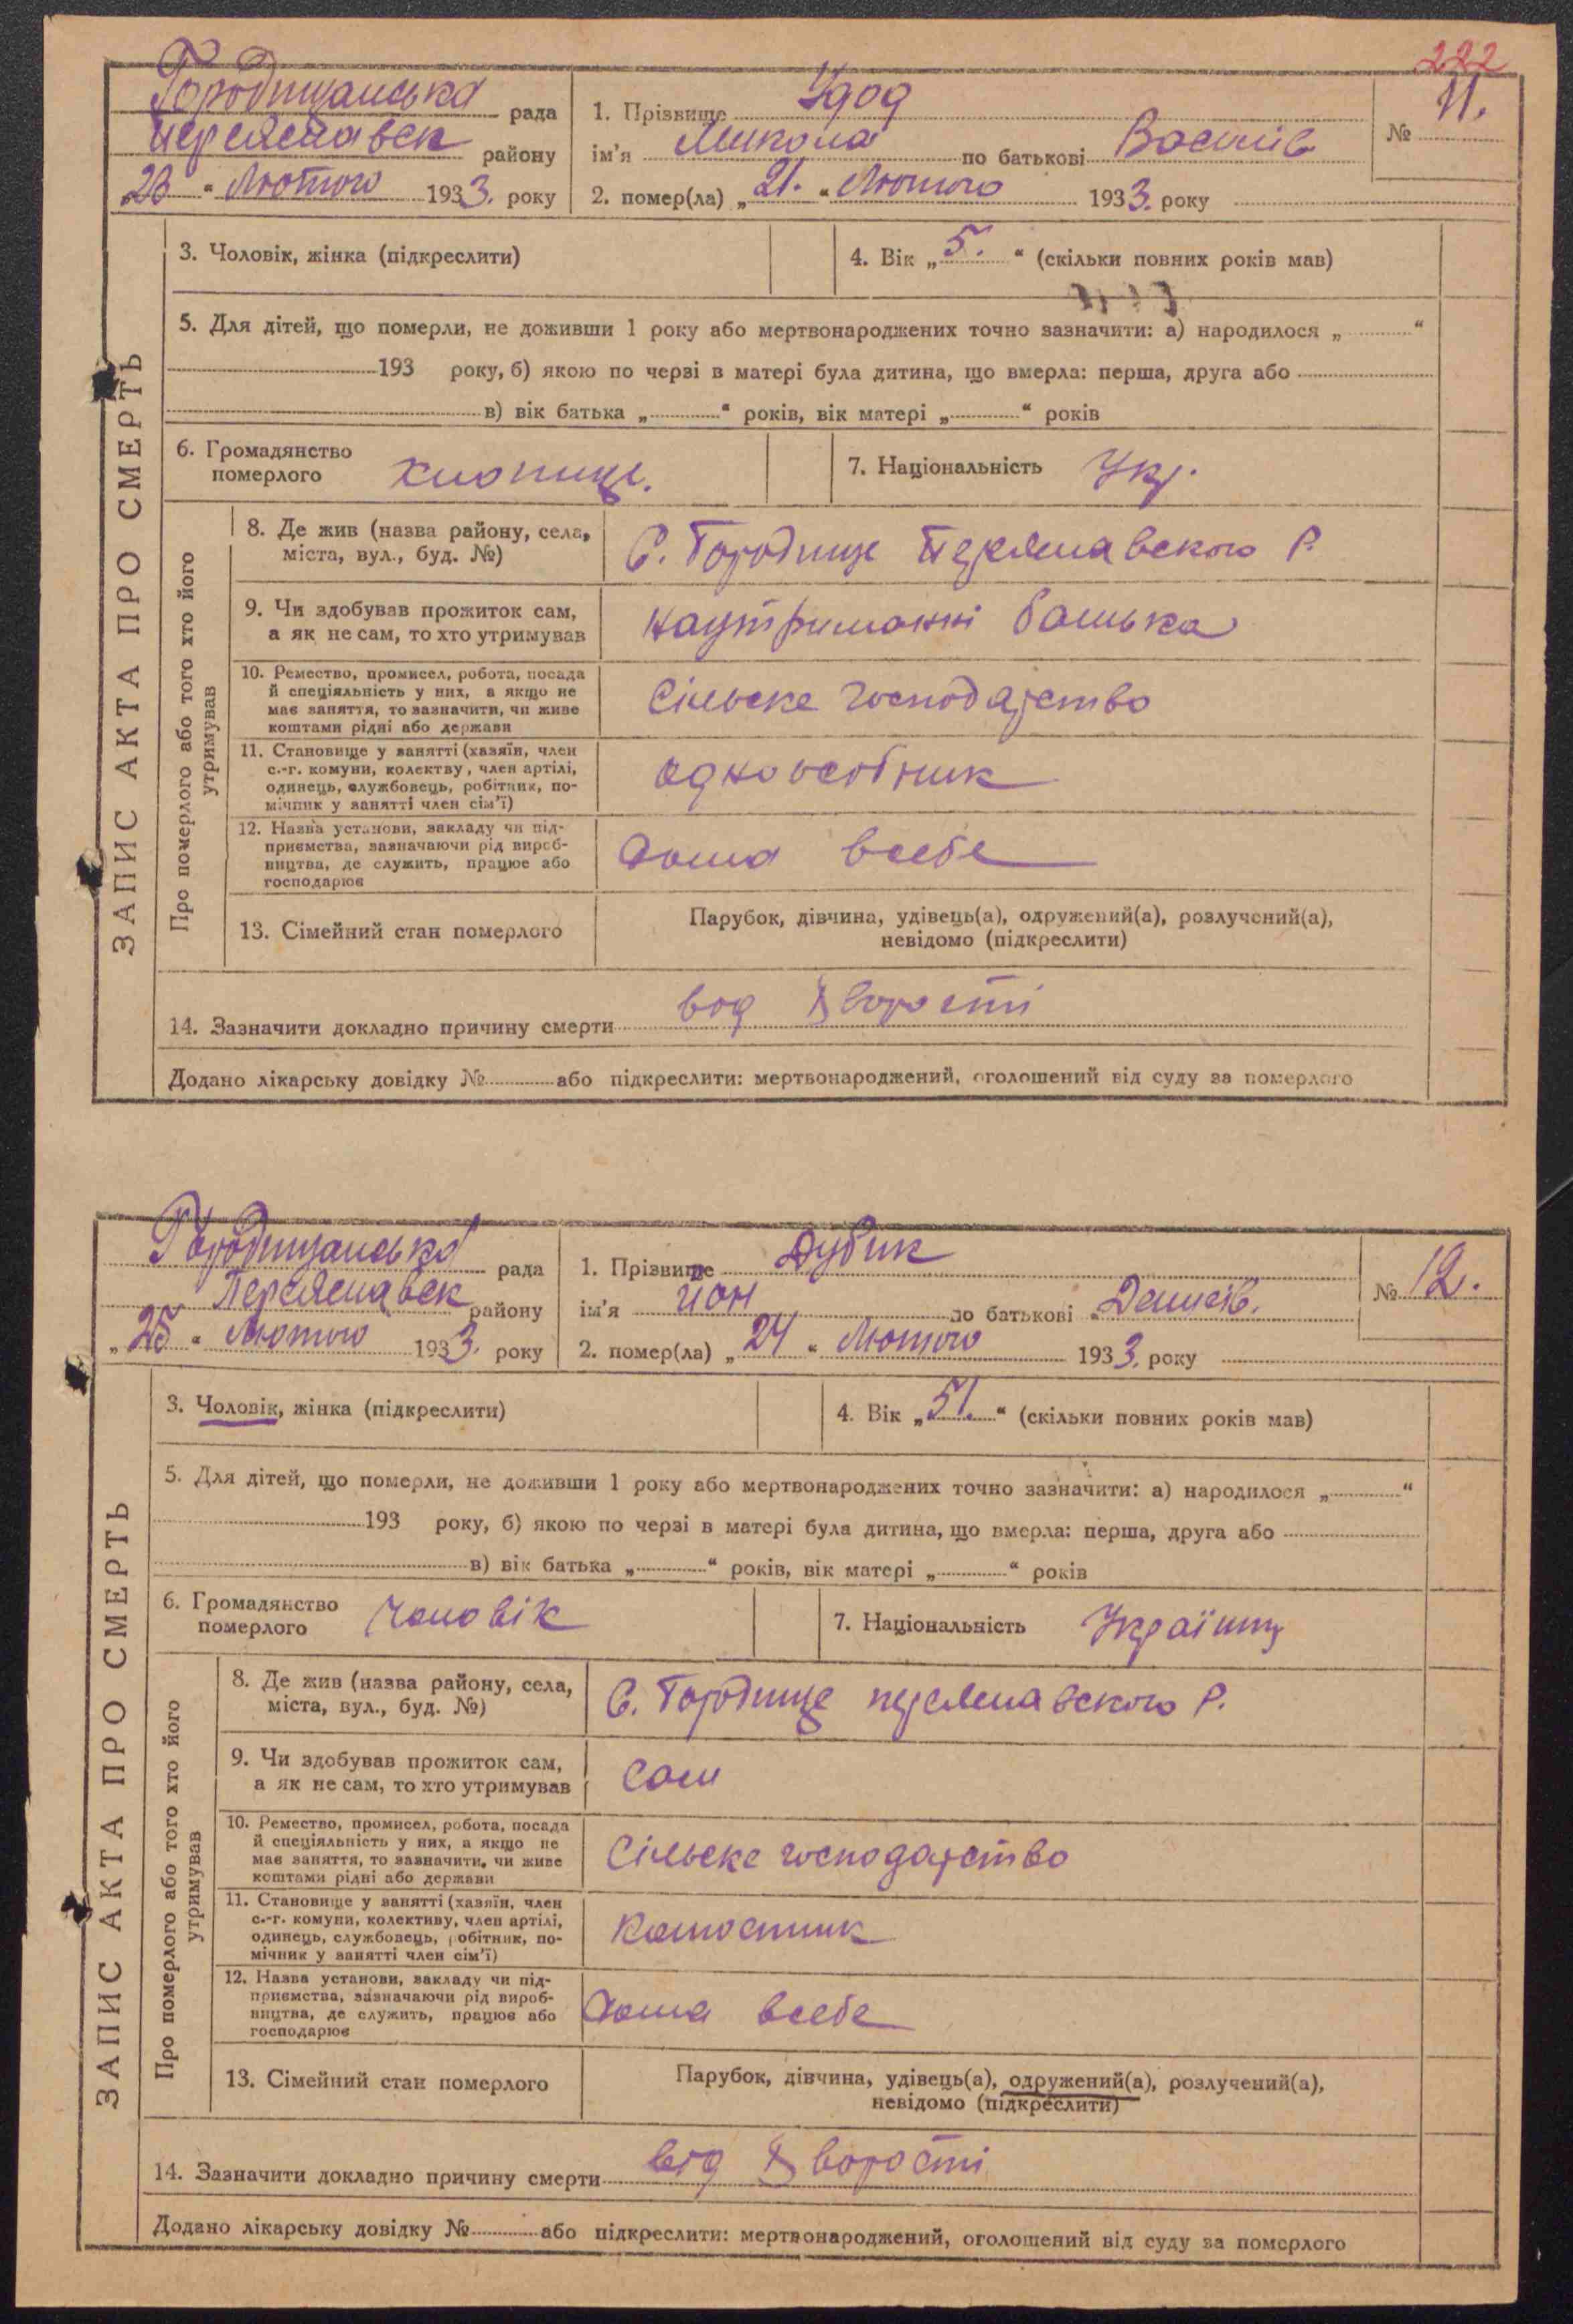 222
Городищанська рада
Переяславск району
„23“ Лютого 1933. року
1. Прізвище Удод
ім’я Микола по батькові Василів
№ 11.
2. помер(ла) „21.“ Лютого 1933. року
3. Чоловік, жінка (підкреслити)
4. Вік „5.“ (скільки повних років мав)
5. Для дітей, що померли, не доживши 1 року або мертвонароджених точно зазначити: а) народилося „ “
193 року, б) якою по черзі в матері була дитина, що вмерла: перша, друга або
в) вік батька „ “ років, вік матері „ “ років
6. Громадянство
померлого хлопище.
7. Національність Укр.
ЗАПИС АКТА ПРО СМЕРТЬ
Про померлого або того хто його
утримував
8. Де жив (назва району, села,
міста, вул., буд. №)
С. Городище Переяславского Р.
9. Чи здобував прожиток сам,
а як не сам, то хто утримував
наутриманні батька
10. Ремество, промисел, робота, посада
й спеціяльність у них, а якщо не
має заняття, то зазначити, чи живе
коштами рідні або держави
Сільске господарство
11. Становище у занятті (хазяїн, член
с.-г. комуни, колектву, член артілі,
одинець, службовець, робітник, по-
мічник у занятті член сім’ї)
одноосібник
12. Назва установи, закладу чи під-
приємства, зазначаючи рід вироб-
ництва, де служить, працює або
господарює
дома всебе
13. Сімейний стан померлого
Парубок, дівчина, удівець(а), одружений(а), розлучений(а),
невідомо (підкреслити)
14. Зазначити докладно причину смерти вод Хворости
Додано лікарську довідку № або підкреслити: мертвонароджений, оголошений від суду за померлого
Городищанська рада
Переяславск району
„25“ Лютого 1933. року
1. Прізвище Дубик
ім’я Йон по батькові
№ 12.
2. помер(ла) „24“ Лютого 1933. року
3. Чоловік, жінка (підкреслити)
4. Вік „51.“ (скільки повних років мав)
5. Для дітей, що померли, не доживши 1 року або мертвонароджених точно зазначити: а) народилося „ “
193 року, б) якою по черзі в матері була дитина, що вмерла: перша, друга або
в) вік батька „ “ років, вік матері „ “ років
6. Громадянство
померлого чоловік
7. Національність Українц
ЗАПИС АКТА ПРО СМЕРТЬ
Про померлого або того хто його
утримував
8. Де жив (назва району, села,
міста, вул., буд. №)
С. Городище переяславского Р.
9. Чи здобував прожиток сам,
а як не сам, то хто утримував
Сам
10. Ремество, промисел, робота, посада
й спеціяльність у них, а якщо не
має заняття, то зазначити, чи живе
коштами рідні або держави
Сільске господарство
11. Становище у занятті (хазяїн, член
с.-г. комуни, колективу, член артілі,
одинець, службовець, робітник, по-
мічник у занятті член сім’ї)
12. Назва установи, закладу чи під-
приємства, зазначаючи рід вироб-
ництва, де служить, працює або
господарює
дома всебе
13. Сімейний стан померлого
Парубок, дівчина, удівець(а), одружений(а), розлучений(а),
невідомо (підкреслити)
14. Зазначити докладно причину смерти від Хворости
Додано лікарську довідку № або підкреслити: мертвонароджений, оголошений від суду за померлого